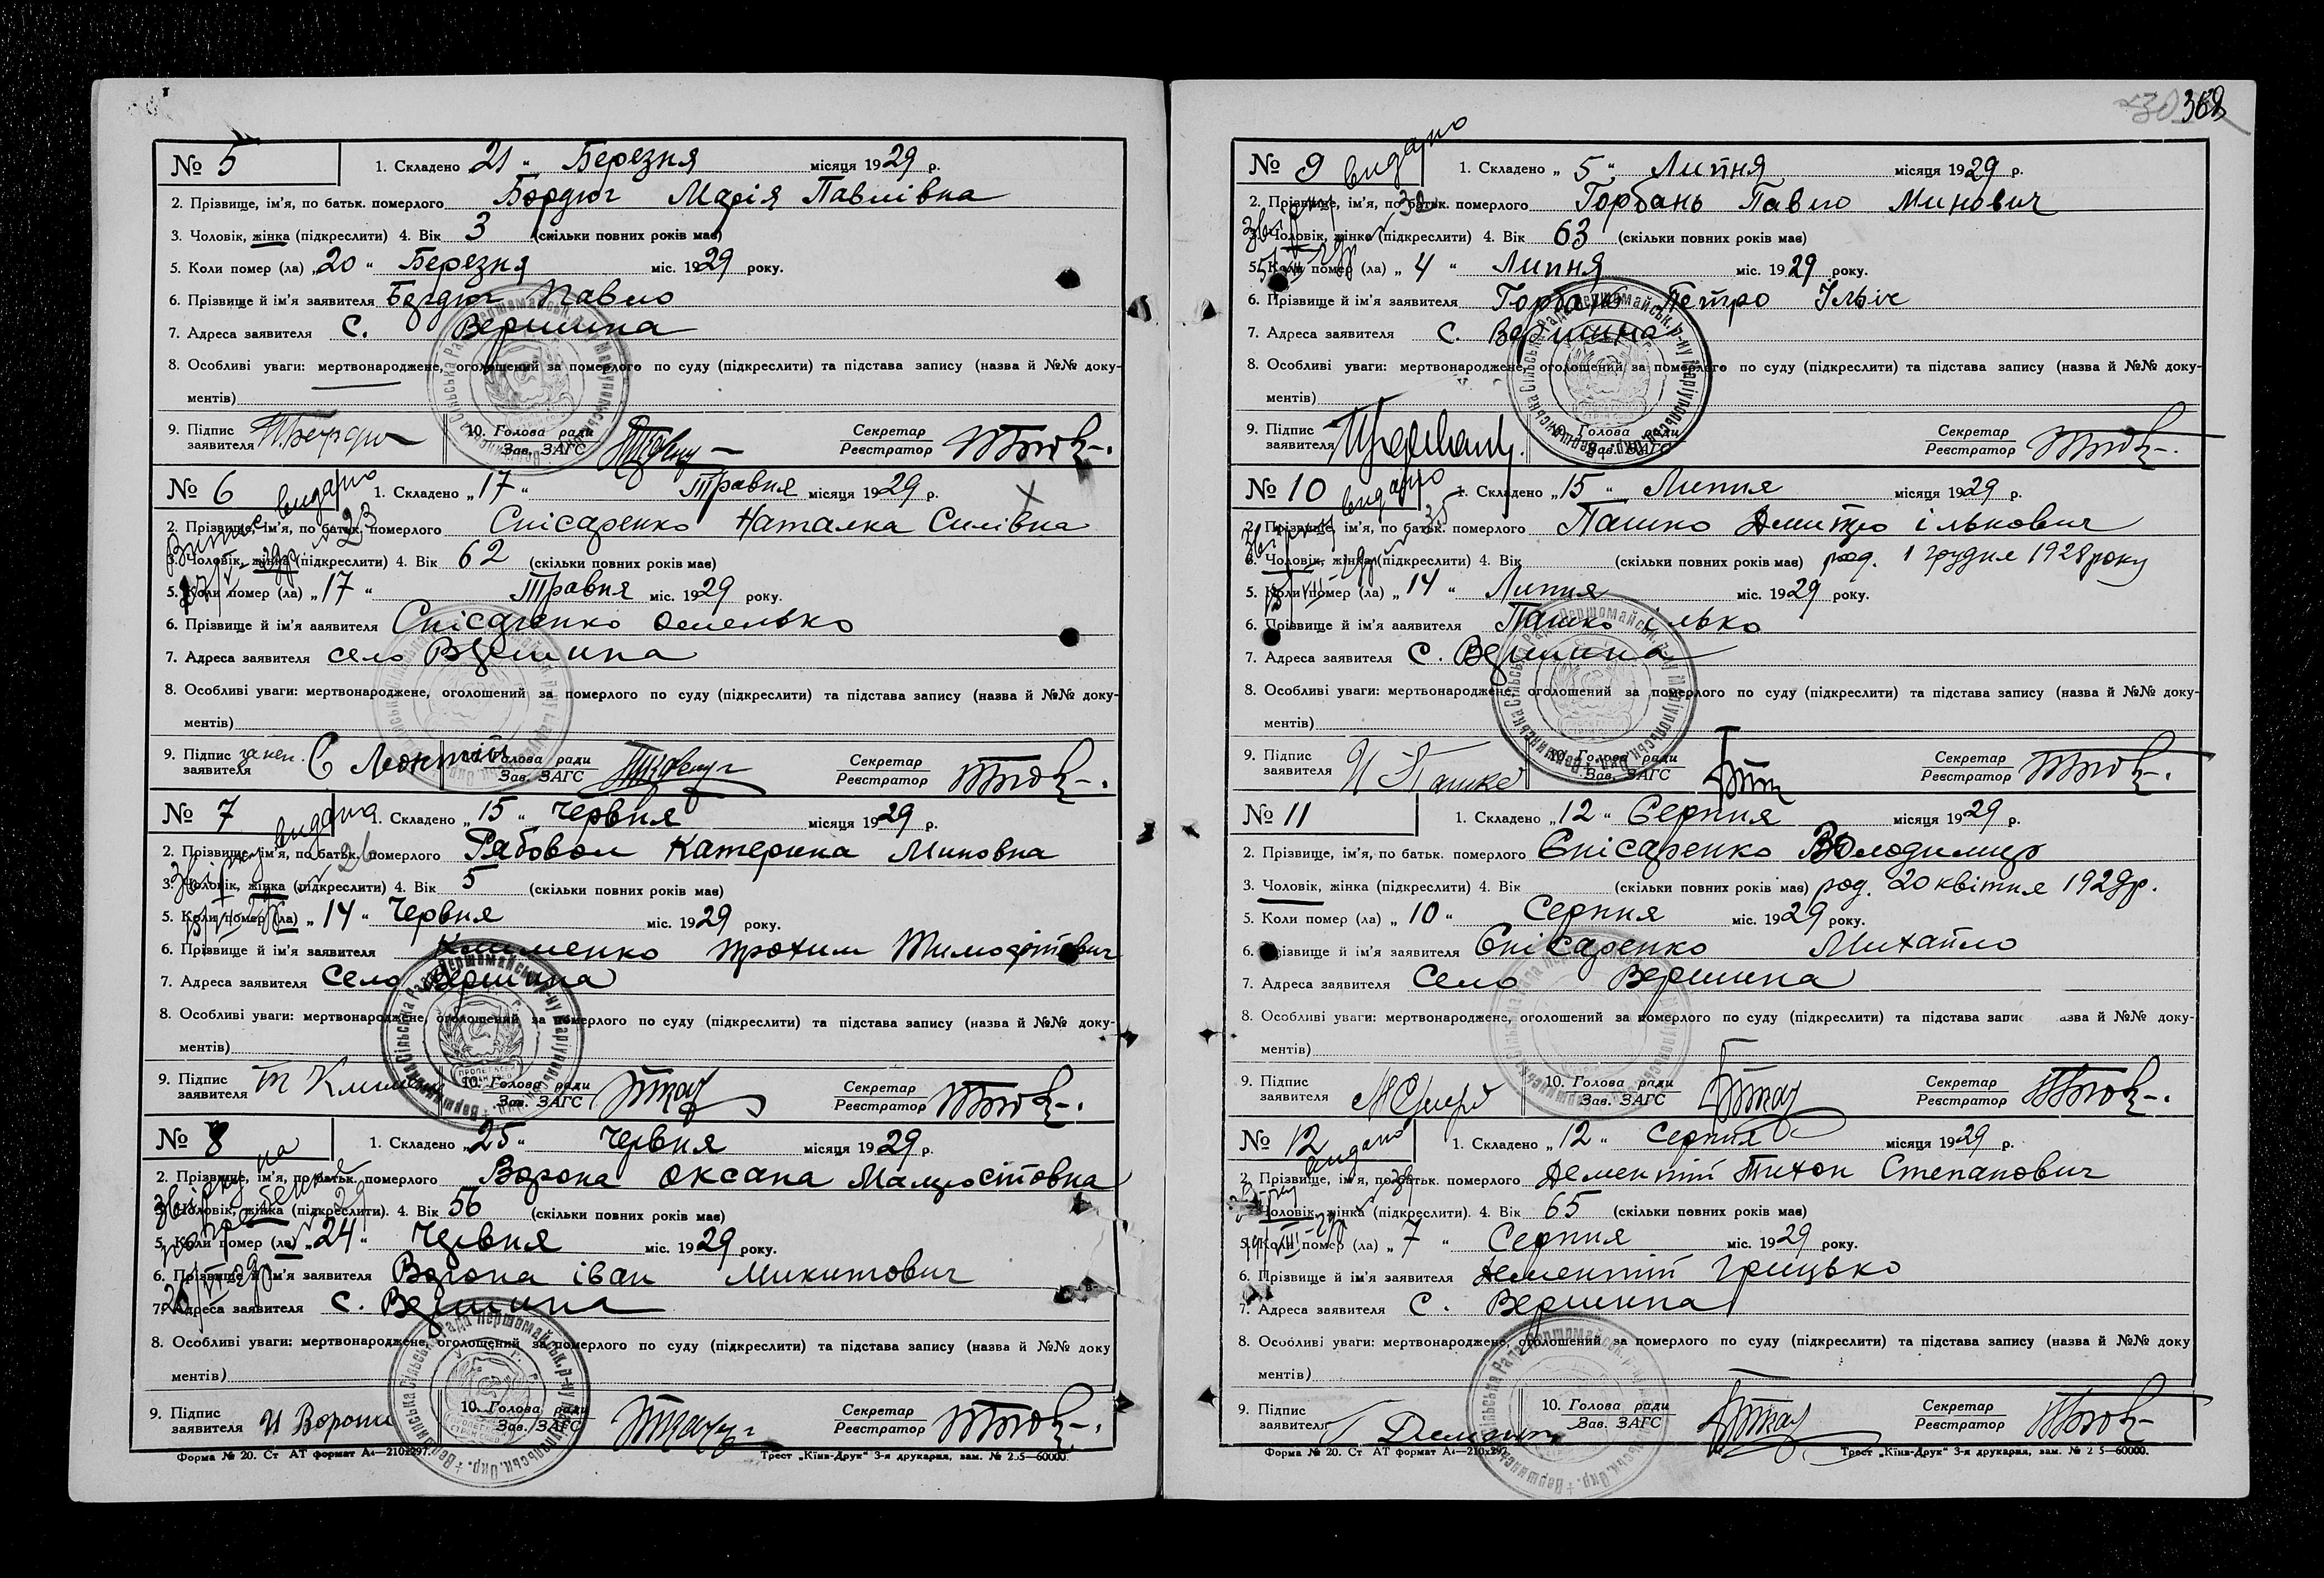 369
№ 5 1. Складено 21 " Березня місяця 1929 р.
2. Прізвище, ім'я, по батьк. померлого Бордюг Марія Павлівна
3. Чоловік, жінка (підкреслити) 4. Вік 3 (скільки повних років має)
5. Коли помер (ла) „20 " Березня міс. 1929 року.
6. Прізвище й ім'я заявителя Бордюг Павло
7. Адреса заявителя С. Вершина
8. Особливі уваги: мертвонароджене, оголошений за померлого по суду (підкреслити) та підстава запису (назва й №№ доку-
ментів)
9. Підпис заявителя 10. Голова ради Зав. ЗАГС Секретар Реєстратор
№ 6 видано 1. Складено „17" Травня місяця 1929 р.
2. Прізвище, ім'я, по батьк. померлого Єпісаренко Наталка Силівна
3. Чоловік, жінка (підкреслити) 4. Вік 62 (скільки повних років має)
5. Коли помер (ла) „17 " Травня міс. 1929 року.
6. Прізвище й ім'я заявителя Єпісаренко Омелько
7. Адреса заявителя село Вершина
8. Особливі уваги: мертвонароджене, оголошений за померлого по суду (підкреслити) та підстава запису (назва й №№ доку-
ментів)
9. Підпис заявителя 10. Голова ради Зав. ЗАГС Секретар Реєстратор
№ 7 видана 1. Складено „15 " Червня місяця 1929 р.
2. Прізвище, ім'я, по батьк. померлого Рябовол Катерина Миновна
3. Чоловік, жінка (підкреслити) 4. Вік 5 (скільки повних років має)
5. Коли помер (ла) „14 " Червня міс. 1929 року.
6. Прізвище й ім'я заявителя Клименко Трохим Тимофійович
7. Адреса заявителя Село Вершина
8. Особливі уваги: мертвонароджене, оголошений за померлого по суду (підкреслити) та підстава запису (назва й №№ доку-
ментів)
9. Підпис заявителя Т Клименко 10. Голова ради Зав. ЗАГС Секретар Реєстратор
№ 8 1. Складено „25" Червня місяця 1929 р.
2. Прізвище, ім'я, по батьк. померлого Ворона Оксана
3. Чоловік, жінка (підкреслити). 4. Вік 56 (скільки повних років має)
5. Коли помер (ла) „24" Червня міс. 1929 року.
6. Прізвище й ім'я заявителя Ворона іван Микитович
7. Адреса заявителя С. Вершина
8. Особливі уваги: мертвонароджене, оголошений за померлого по суду (підкреслити) та підстава запису (назва й №№ доку
ментів)
9. Підпис заявителя И Ворона 10. Голова ради Зав. ЗАГС Секретар Реєстратор
Форма № 20. Ст АТ формат А4—210x297. Трест „Київ-Друк" 3-я друкарня, зам. № 2.5—60000.
№ 9 видано 1. Складено „ 5 " Липня місяця 1929 р.
2. Прізвище, ім'я, по батьк. померлого Горбань Павло Минович
3. Чоловік, жінка (підкреслити) 4. Вік 63 (скільки повних років має)
5. Коли помер (ла) „ 4 " Липня міс. 1929 року.
6. Прізвище й ім'я заявителя Горбань Петро Ільіч
7. Адреса заявителя С. Вершина
8. Особливі уваги: мертвонароджене, оголошений за померлого по суду (підкреслити) та підстава запису (назва й №№ доку-
ментів)
9. Підпис заявителя 10. Голова ради Зав. ЗАГС Секретар Реєстратор
№ 10 видано 1. Складено „15 " Липня місяця 1929 р.
2. Прізвище, ім'я, по батьк. померлого Пашко Дмитро ількович
3. Чоловік, жінка (підкреслити) 4. Вік (скільки повних років має) род. 1 грудня 1928 року
5. Коли помер (ла) „ 14 " Липня міс. 1929 року.
6. Прізвище й ім'я заявителя Пашко ілько
7. Адреса заявителя С. Вершина
8. Особливі уваги: мертвонароджене, оголошений за померлого по суду (підкреслити) та підстава запису (назва й №№ доку-
ментів)
9. Підпис заявителя И Пашко 10. Голова ради Зав. ЗАГС Секретар Реєстратор
№ 11 1. Складено „12 " Серпня місяця 1929 р.
2. Прізвище, ім'я, по батьк. померлого Єпісаренко Володимир
3. Чоловік, жінка (підкреслити) 4. Вік (скільки повних років має) род. 20 квітня 1929р.
5. Коли помер (ла) „ 10 " Серпня міс. 1929 року.
6. Прізвище й ім'я заявителя Єпісаренко Михайло
7. Адреса заявителя Село Вершина
8. Особливі уваги: мертвонароджене, оголошений за померлого по суду (підкреслити) та підстава запис азва й №№ доку-
ментів)
9. Підпис заявителя 10. Голова ради Зав. ЗАГС Секретар Реєстратор
№ 12 видано 1. Складено „ 12 " Серпня місяця 1929 р.
2. Прізвище, ім'я, по батьк. померлого Дементій Тихон Степанович
3. Чоловік, жінка (підкреслити). 4. Вік 65 (скільки повних років має)
5. Коли помер (ла) „ 7 " Серпня міс. 1929 року.
6. Прізвище й ім'я заявителя Дементій Грицько
7. Адреса заявителя С. Вершина
8. Особливі уваги: мертвонароджене, оголошений за померлого по суду (підкреслити) та підстава запису (назва й №№ доку
ментів)
9. Підпис заявителя 10. Голова ради Зав. ЗАГС Секретар Реєстратор
Форма № 20. Ст АТ формат А4—210x297. Трест „Київ-Друк" 3-я друкарня, зам. № 2 5—60000.